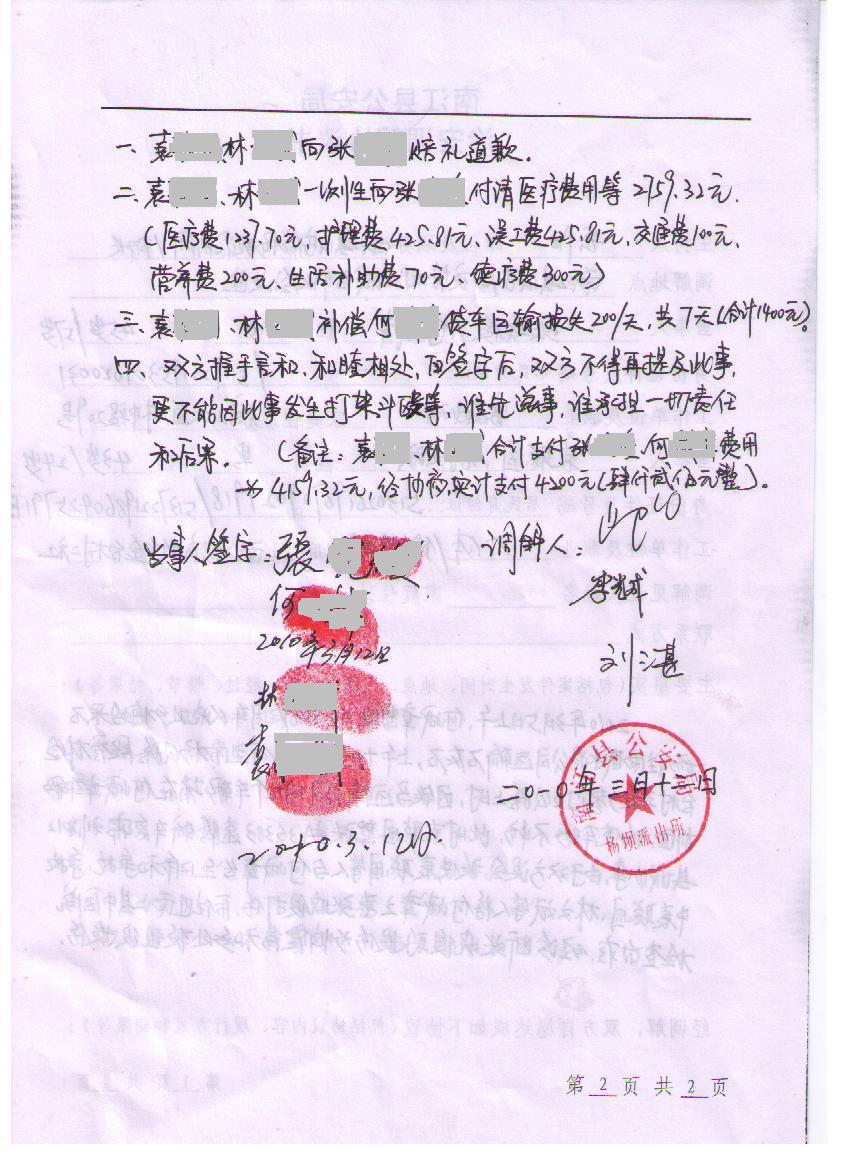 一、袁 林 向张 赔礼道歉。
二、袁 、林 一次性向张 付清医疗费用等2759.32元.
(医疗费1237.70元、护理费425.81元、误工费425.81元、交通费100元、
营养费200元、生活补助费70元、 疗费300元)
三、袁 、林 补偿何 停车运输损失200/天,共7天(合计1400元)。
四、双方握手言和,和睦相处,自签字后,双方不得再提及此事,
更不能因此事发生打架斗殴等,谁先滋事,谁承担一切责任
和后果。 (备注:袁 、林 合计支付张 、何 费用
为4159.32元,经协商,实计支付4200元(肆仟贰佰元整)。
当事人签字:張 调解人:
何 李斌
2010年3月12日
刘湛
林
袁
二〇一〇年三月十二日
南江县公安局
杨坝派出所
2010.3.12日.
第 2 页 共 2 页